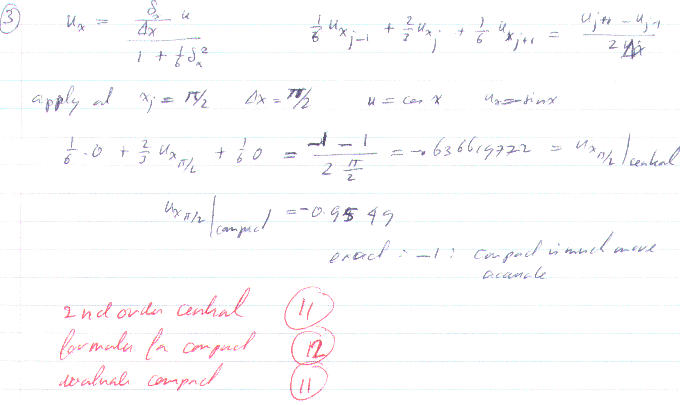 ③ u_x = (δ_x/Δx u)/(1 + 1/6 δ_x^2)   1/6 u_{x_{j-1}} + 2/3 u_{x_j} + 1/6 u_{x_{j+1}} = (u_{j+1} - u_{j-1})/(2Δx)
apply at x_j = π/2   Δx = π/2   u = cos x   u_x = -sin x
1/6 · 0 + 2/3 u_{x_{π/2}} + 1/6 0 = (-1 - 1)/(2 π/2) = -.636619722 = u_{x_{π/2}}|central
u_{x_{π/2}}|compact = -0.9549
exact : -1 : compact is much more
accurate
2nd order central ⑪
formula for compact ⑫
evaluate compact ⑪